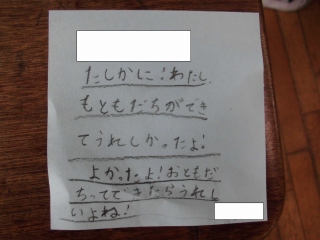 たしかに!わたし
もともだちができ
てうれしかったよ!
よかったよ!おともだ
ちってできたらうれし
いよね!